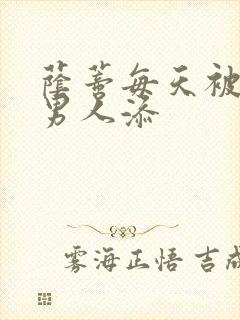 蔭蒂每天被
男人添
雾海正悟 吉成